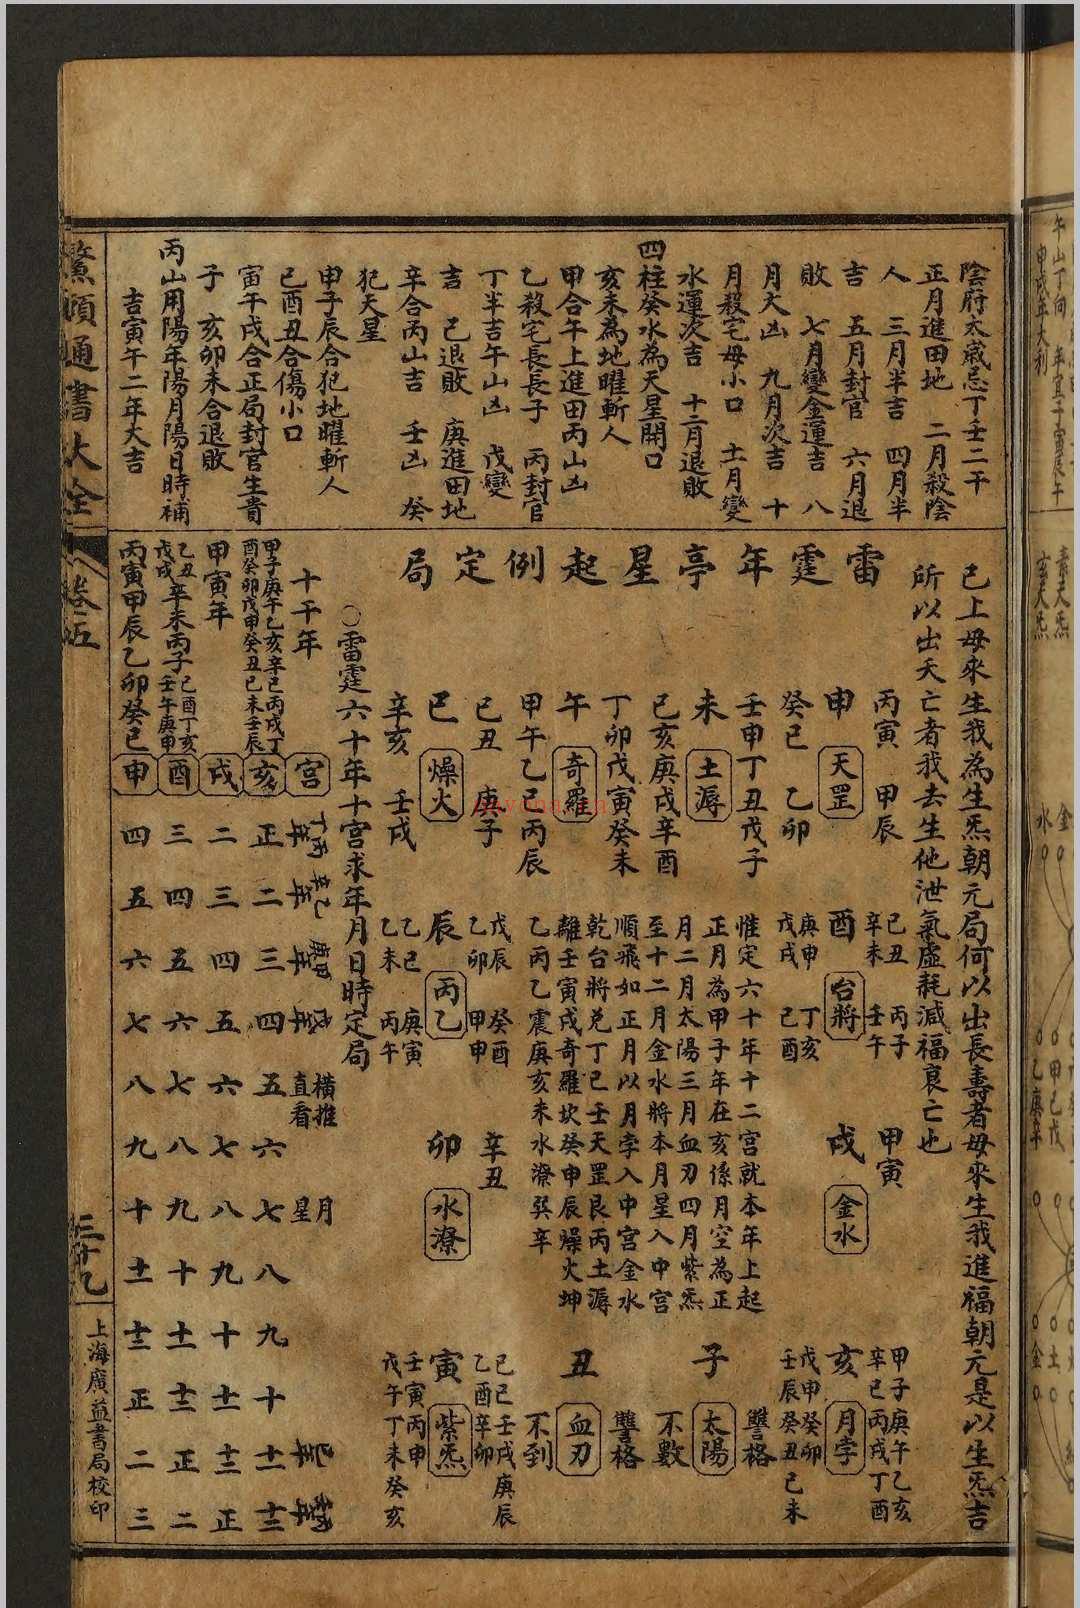 陰府太歲忌丁壬二干
正月進田地　二月殺陰
人　三月半吉　四月半
吉　五月封官　六月退
敗　七月變金運吉　八
月大凶　九月次吉　十
月殺宅母小口　十一月變
水運次吉　十二月退敗
四柱癸水為天星開口
亥未為地曜斬人
甲合午上進田丙山凶
乙殺宅長長子　丙封官
丁半吉午山凶　戊變
吉　己退敗　庚進田地
辛合丙山吉　壬凶　癸
犯天星
申子辰合犯地曜斬人
巳酉丑合傷小口
寅午戌合正局封官生貴
子　亥卯未合退敗
丙山用陽年陽月陽日時補
吉寅午二年大吉
已上母來生我為生炁朝元局何以出長壽者母來生我進福朝元是以生炁吉
所以出夭亡者我去生他泄氣虛耗減福衰亡也
雷霆年亭星起例定局
丙寅　甲辰
申　天罡
癸巳　乙卯
壬申丁丑戊子
未　土溽
己亥庚戌辛酉
丁卯戊寅癸未
午　奇羅
甲午乙巳丙辰
己丑　庚子
巳　燥火
辛亥　壬戌
己丑　丙子
辛未　壬午
酉　台將
庚申　丁亥
戊戌　己酉
甲寅
戌　金水
甲子庚午乙亥
辛巳丙戌丁酉
亥　月孛
戊申癸卯
壬辰癸丑己未
惟定六十年十二宮就本年上起
正月為甲子年在亥係月空為正
月二月太陽三月血刃四月紫炁
至十二月金水將本月星入中宮
順飛如正月以月孛入中宮金水
乾台將兌丁巳壬天罡艮丙土溽
離壬寅戌奇羅坎癸申辰燥火坤
乙丙乙震庚亥未水潦巽辛
讐格
子　太陽
不數
讐格
丑　血刃
不到
戊辰　癸酉
乙卯　甲申
辰　丙乙
乙巳　庚寅
乙未　丙午
辛丑
卯　水潦
己巳壬戌庚辰
乙酉辛卯
寅　紫炁
壬寅丙申
戊午丁未癸亥
○雷霆六十年十宮求年月日時定局
十干年　宮　丁丙年　辛乙年　庚甲年　戊年　橫推直看　月星
甲子庚午乙亥辛巳丙戌丁
酉癸卯戊申癸丑己未壬辰
亥　正二三四五六七八九十十一十二
甲寅年
戌　二三四五六七八九十十一十二正
乙丑辛未丙子己酉丁亥
戊戌壬午庚申
酉　三四五六七八九十十一十二正二
丙寅甲辰乙卯癸巳
申　四五六七八九十十一十二正二三
鰲頭通書大全
卷五
三十九
上海廣益書局校印